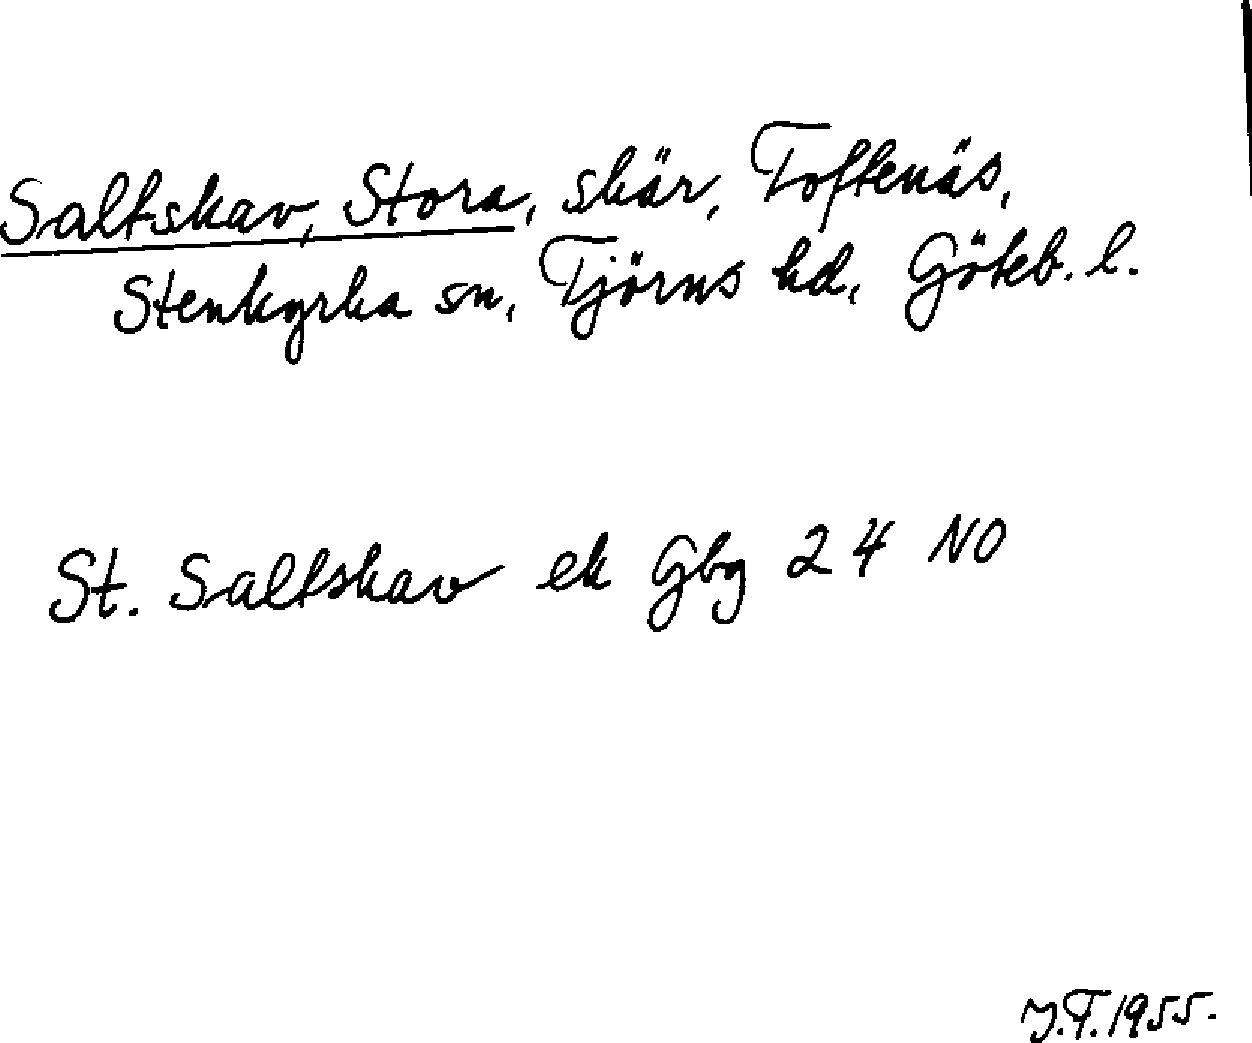 Saltskav, Stora, skär, Toftenäs,
Stenkyrka sn, Tjörns hd, Göteb. l.
St. Saltskav ek Gbg 24 NO
J.T. 1955.